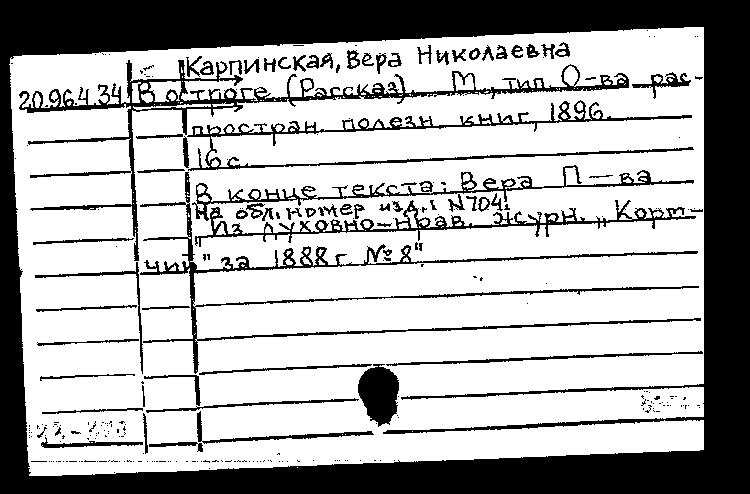 Карпинская, Вера Николаевна
20.96.4.34 В остроге (Рассказ). М., тип. О-ва рас-
простран. полезн. книг, 1896.
16 с.
В конце текста: Вера П—ва
На обл. номер изд.: N704.
"Из духовно-нрав. журн. „Корм-
чий" за 1888 г. №8"